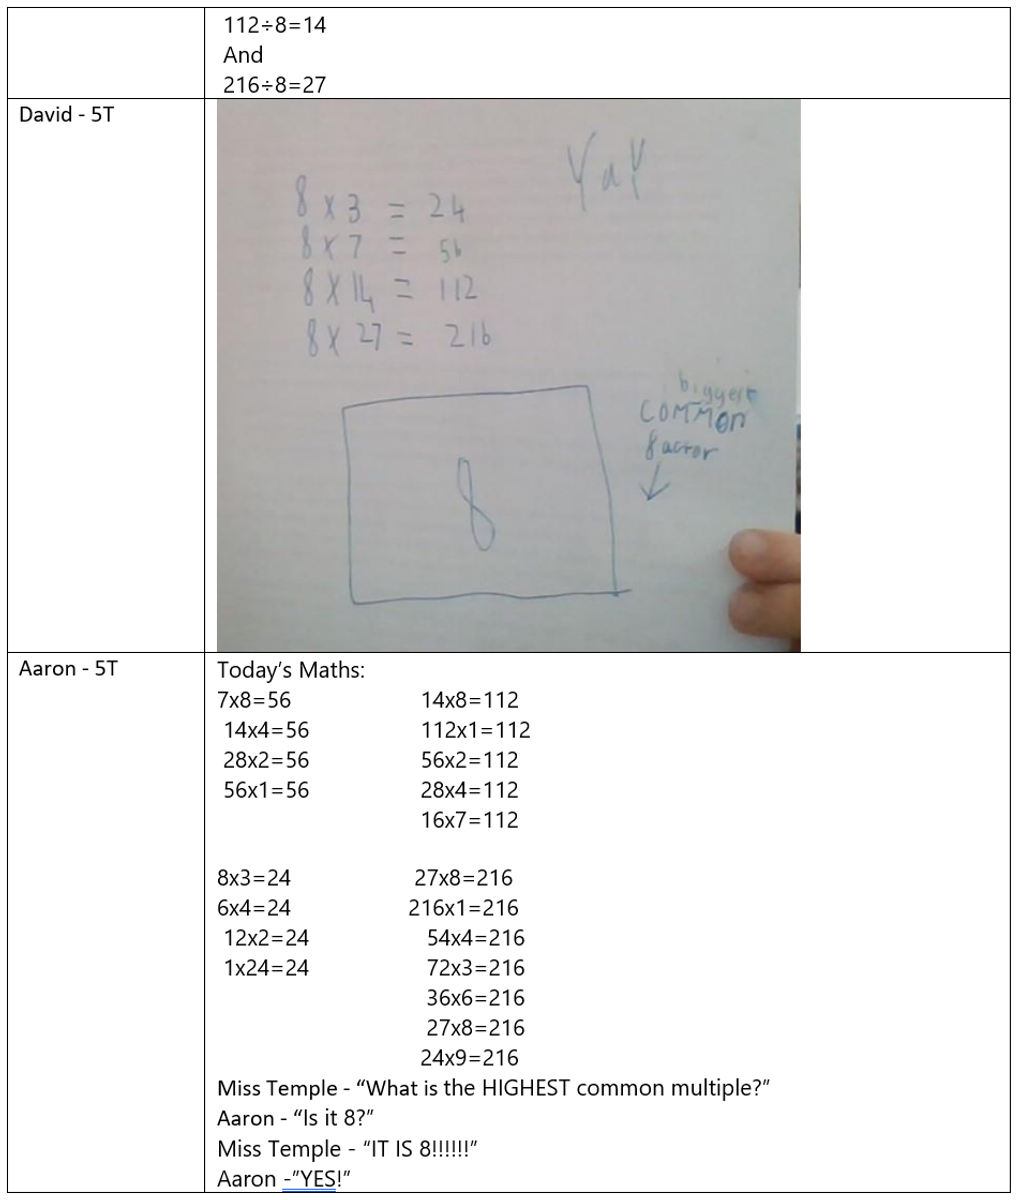 112÷8=14
And
216÷8=27
David - 5T
YaY
8 x 3 = 24
8 x 7 = 56
8 x 14 = 112
8 x 27 = 216
biggest
COMMON
factor
8
Aaron - 5T
Today’s Maths:
7x8=56 14x8=112
14x4=56 112x1=112
28x2=56 56x2=112
56x1=56 28x4=112
16x7=112
8x3=24 27x8=216
6x4=24 216x1=216
12x2=24 54x4=216
1x24=24 72x3=216
36x6=216
27x8=216
24x9=216
Miss Temple - “What is the HIGHEST common multiple?”
Aaron - “Is it 8?”
Miss Temple - “IT IS 8!!!!!!”
Aaron -”YES!”